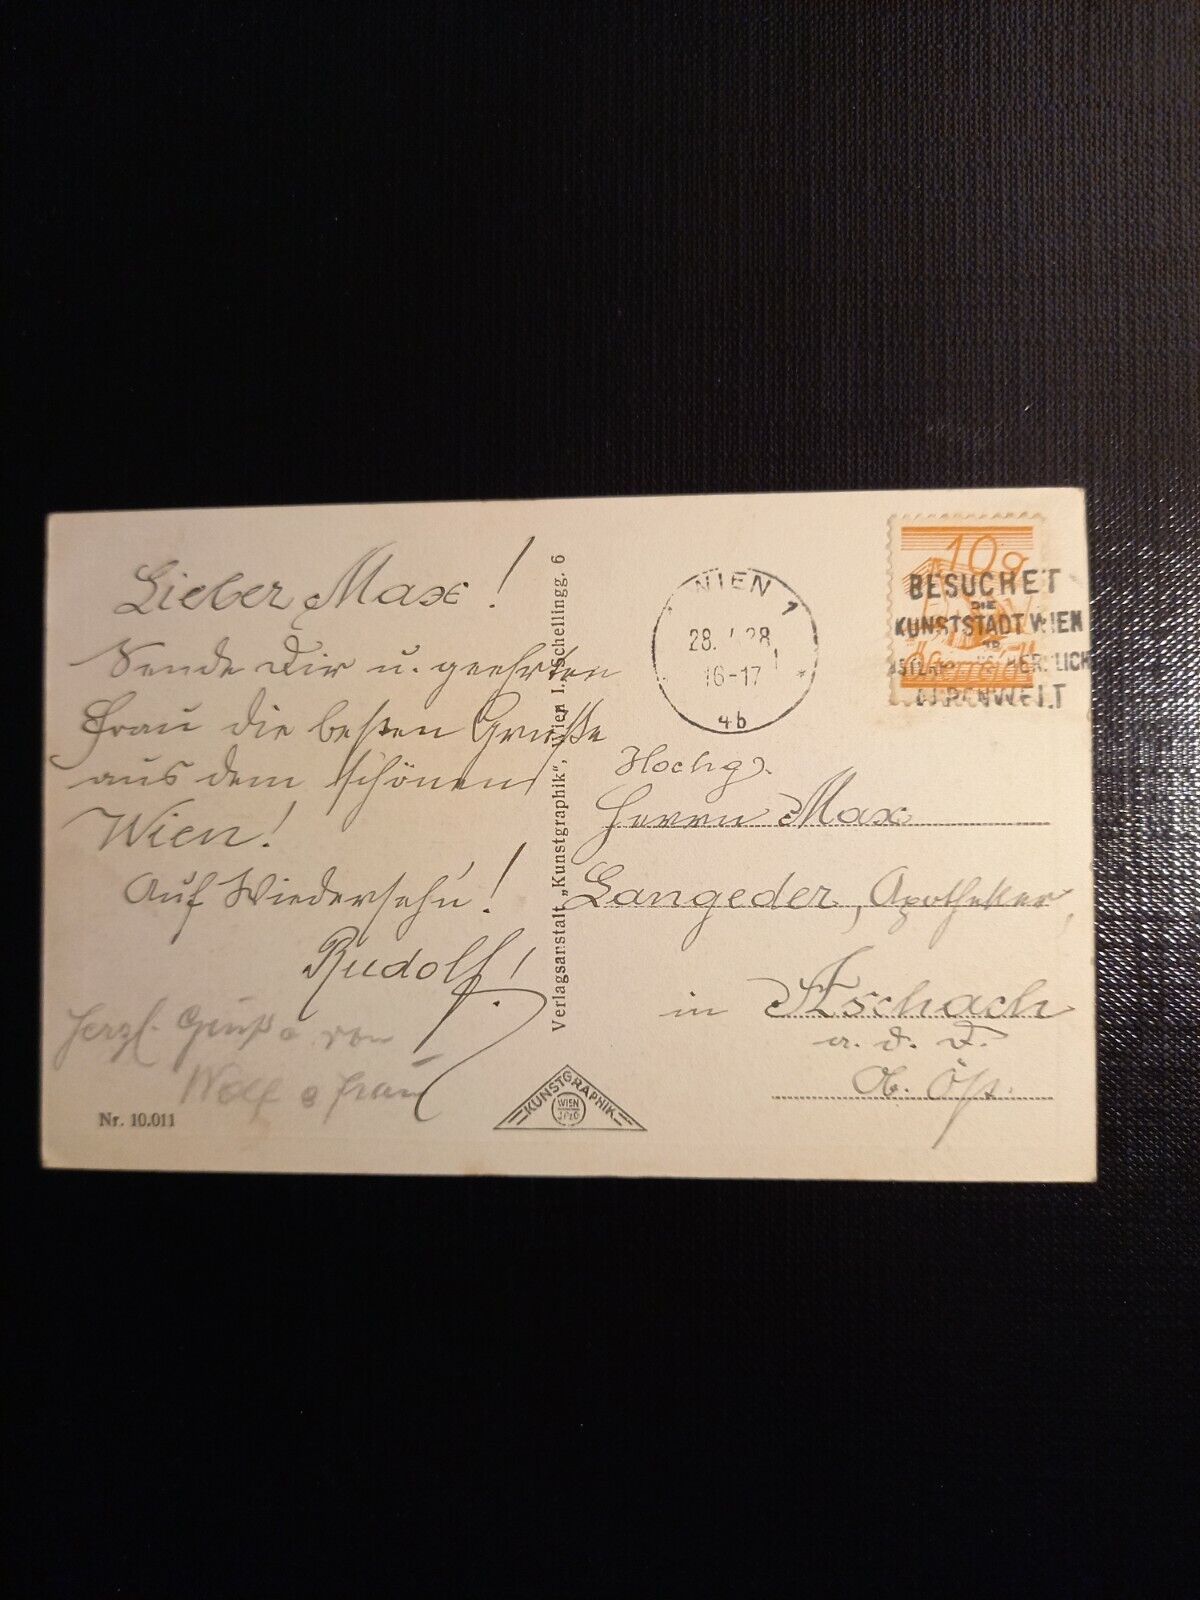 Lieber Max!
Sende Dir u. geehrten
Frau die besten Grüße
aus dem schönen
Wien!
Auf Wiedersehn!
Rudolf!
Herzl. Grüße von
Wolf & Frau
Nr. 10.011
Verlagsanstalt „Kunstgraphik“, Wien I. Schellingg. 6
KUNSTGRAPHIK
WIEN
WIEN 1
28. 28
16-17
4b
10g
BESUCHET
DIE
KUNSTSTADT WIEN
Hochg.
Herrn Max
Langeder, Apotheker,
in Aschach
a. d. D.
Ob. Öst.